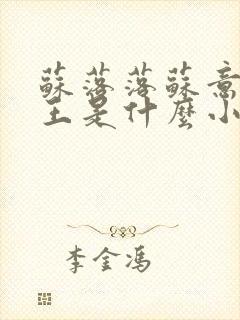 蘇落落蘇意
主是什麼小
李金馮